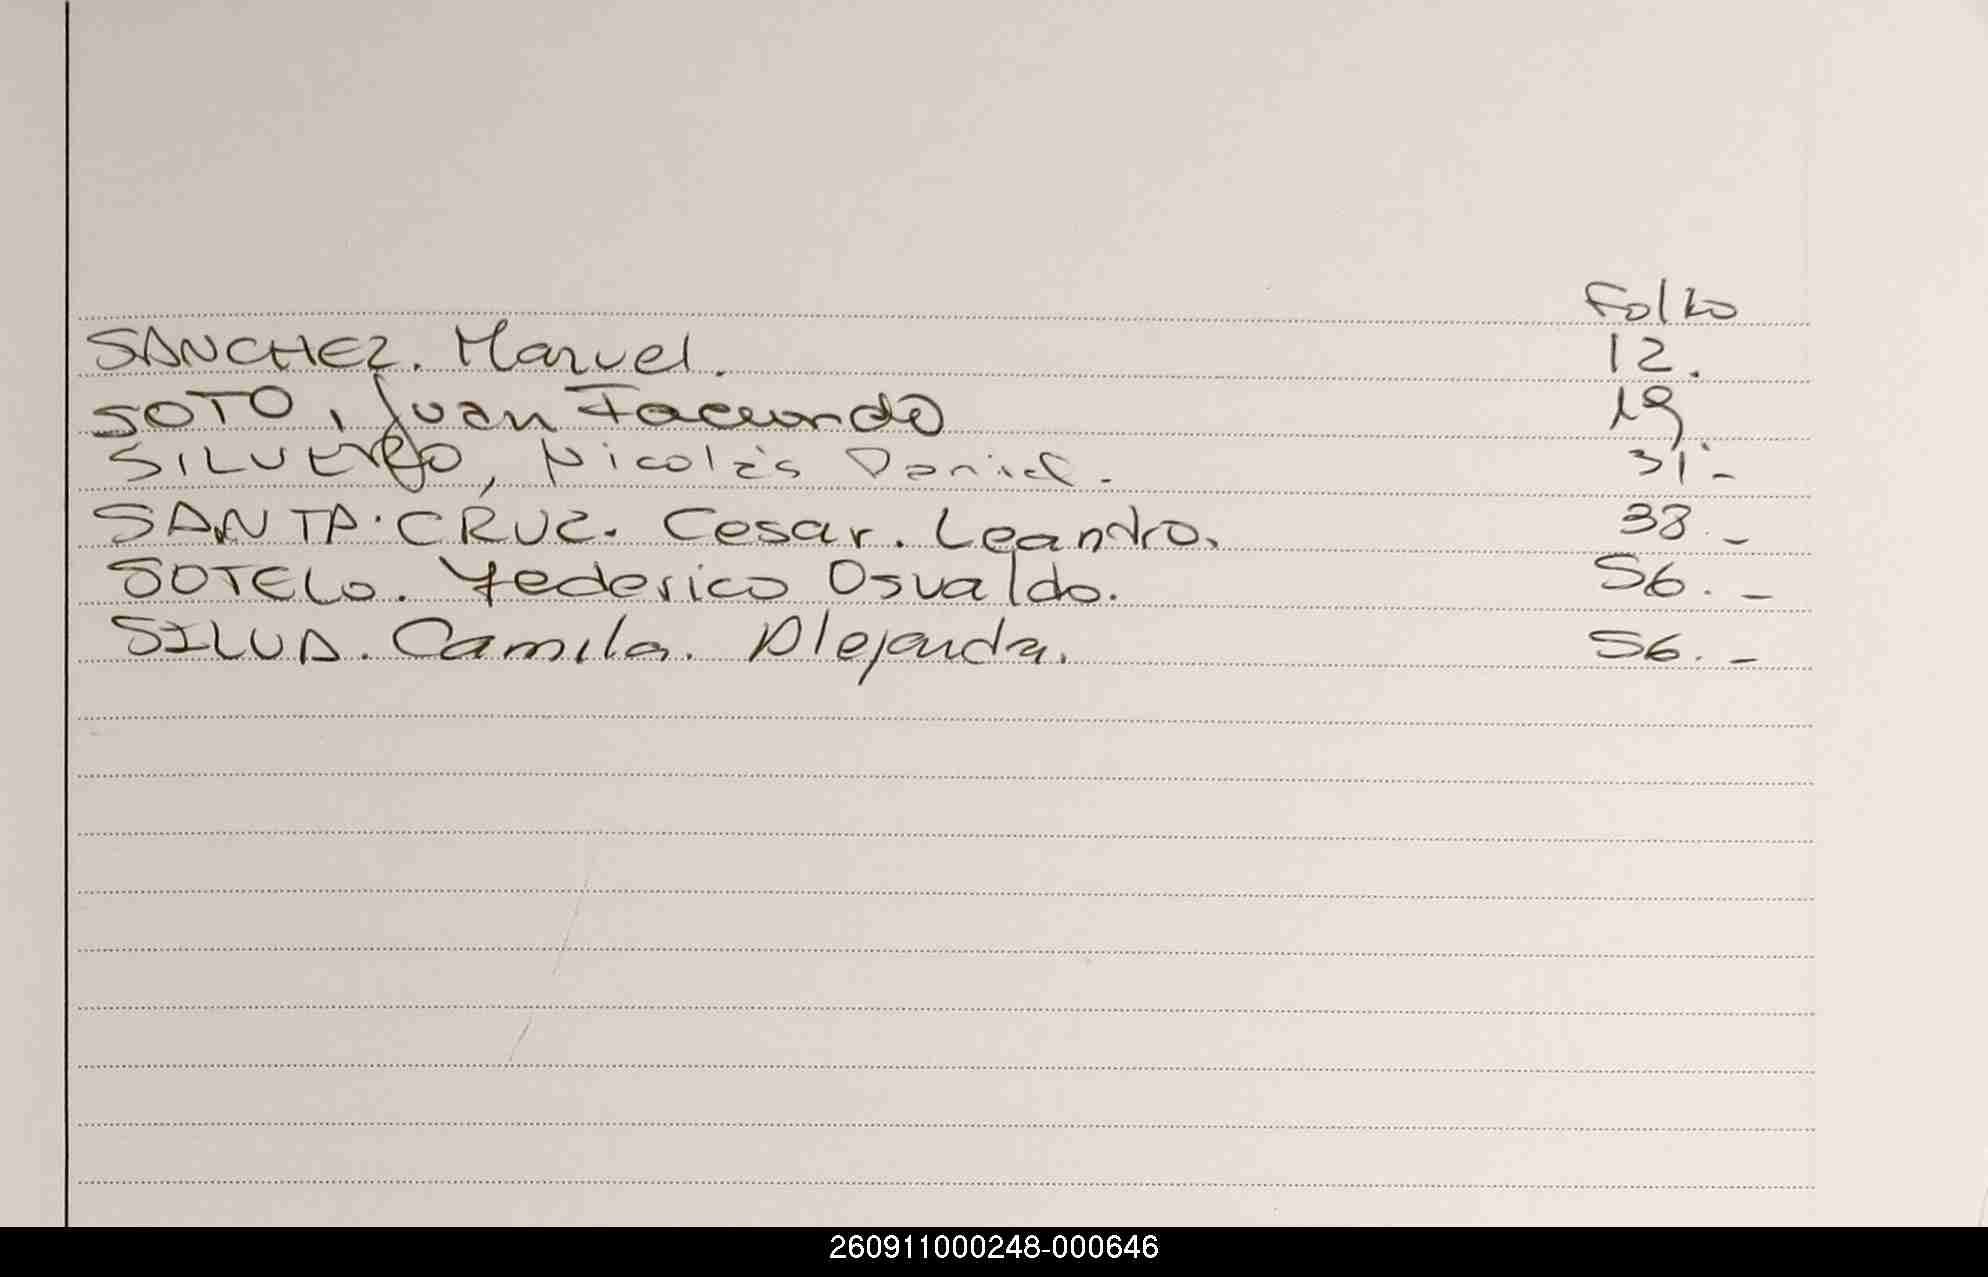 Folio
SANCHEZ. Manuel. 12.
SOTO, Juan Facundo 19.
SILVERO, Nicolás Daniel. 31.-
SANTA CRUZ. Cesar. Leandro. 38.-
SOTELO. Federico Osvaldo. 56.-
SILVA. Camila. Alejandra. 56.-
260911000248-000646